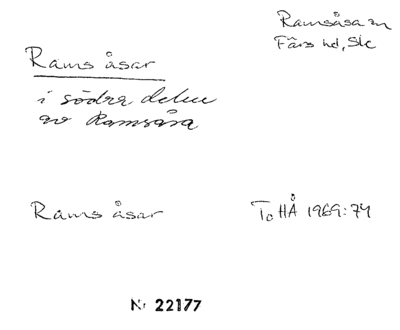 Ramsåsa sn
Färs hd, Sk
Rams åsar
i södra delen
av Ramsåsa
Rams åsar
To HÅ 1969:74
Nr 22177